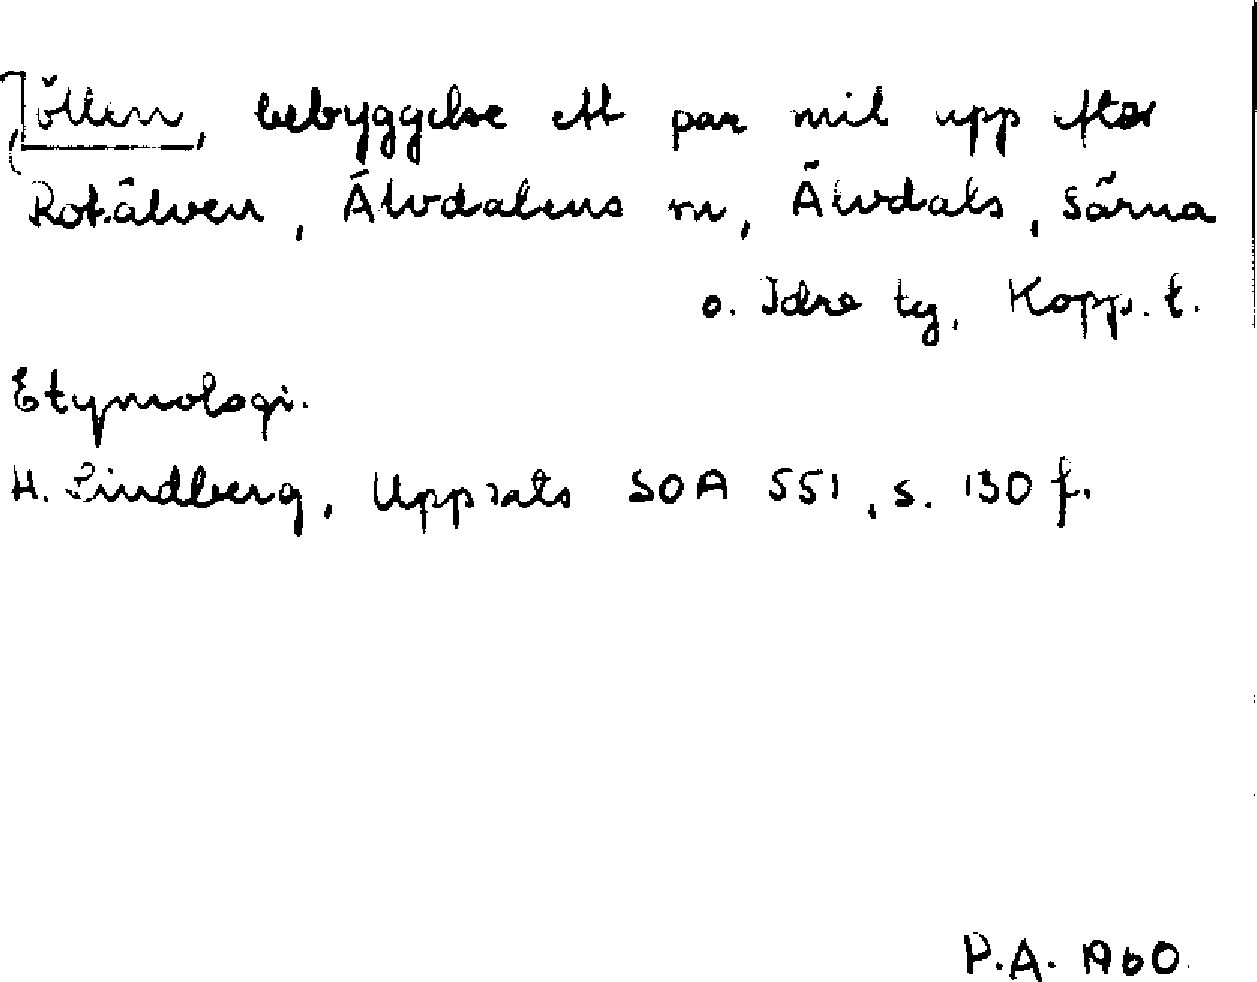 Jöllen, bebyggelse ett par mil upp efter
Rotälven, Älvdalens sn, Älvdals, Särna
o. Idre tg, Kopp. l.
Etymologi.
H. Lindberg, Uppsats SOA 551, s. 130 f.
P.A. 1960